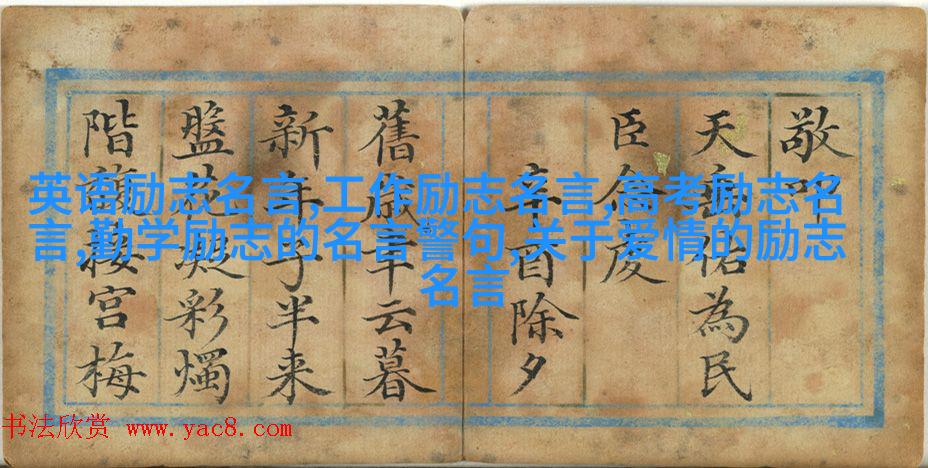 英语励志名言,工作励志名言,高考励志名
言,勤学励志的名言警句,关于爱情的励志
名言
敬
天祐為民
臣
辛酉除夕
舊歲云暮
新年子半来
盤花凝彩燭
階接宮梅
书法欣赏 www.yac8.com